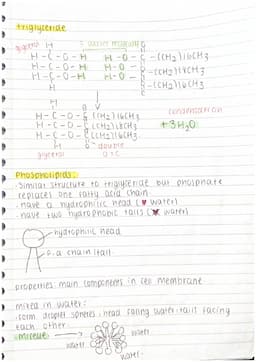 triglyceride
glycerol H
H - C - O - H H - O - C - (CH2)16CH3
H - C - O - H H - O - C - (CH2)16CH3
H - C - O - H H - O - C - (CH2)16CH3
H
H
H - C - O - C (CH2)16CH3
H - C - O - C (CH2)16CH3
H - C - O - C (CH2)16CH3
H
condensation
+3H2O
glycerol
double
Phospholipids:
- similar structure to triglyceride but phosphate
replaces one fatty acid chain
- have a hydrophilic head (♥ water)
- have two hydrophobic tails ( water)
hydrophilic head
f.a chain/tail
properties: main components in cell membrane
mixed in water:
form droplet spheres, head facing water, tail facing
each other
micelle
water
water
water